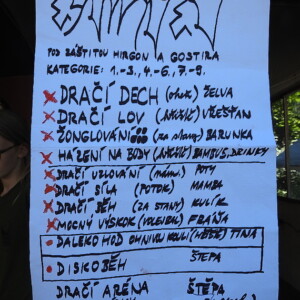 POD ZÁŠTITOU HIRGON A GOSTIRA
KATEGORIE: 1.-3., 4.-6., 7.-9.
DRAČÍ DECH (oheň) ŽELVA
DRAČÍ LOV VŠEŠŤAN
ŽONGLOVÁNÍ (za stany) BARUNKA
HÁZENÍ NA BUDY BAMBUS, DRINKY
DRAČÍ UZLOVÁNÍ (nám.) POTY
DRAČÍ SÍLA (POTOK) MAMBA
DRAČÍ BĚH (ZA STANY) KULÍK
MOCNÝ VÝSKOK (VOLEJBAL) FRÁŇA
DALEKO HOD OHNIVOU KOULÍ (HŘIŠTĚ) TINA
DISKOBĚH ŠTĚPA
DRAČÍ ARÉNA ŠTĚPA